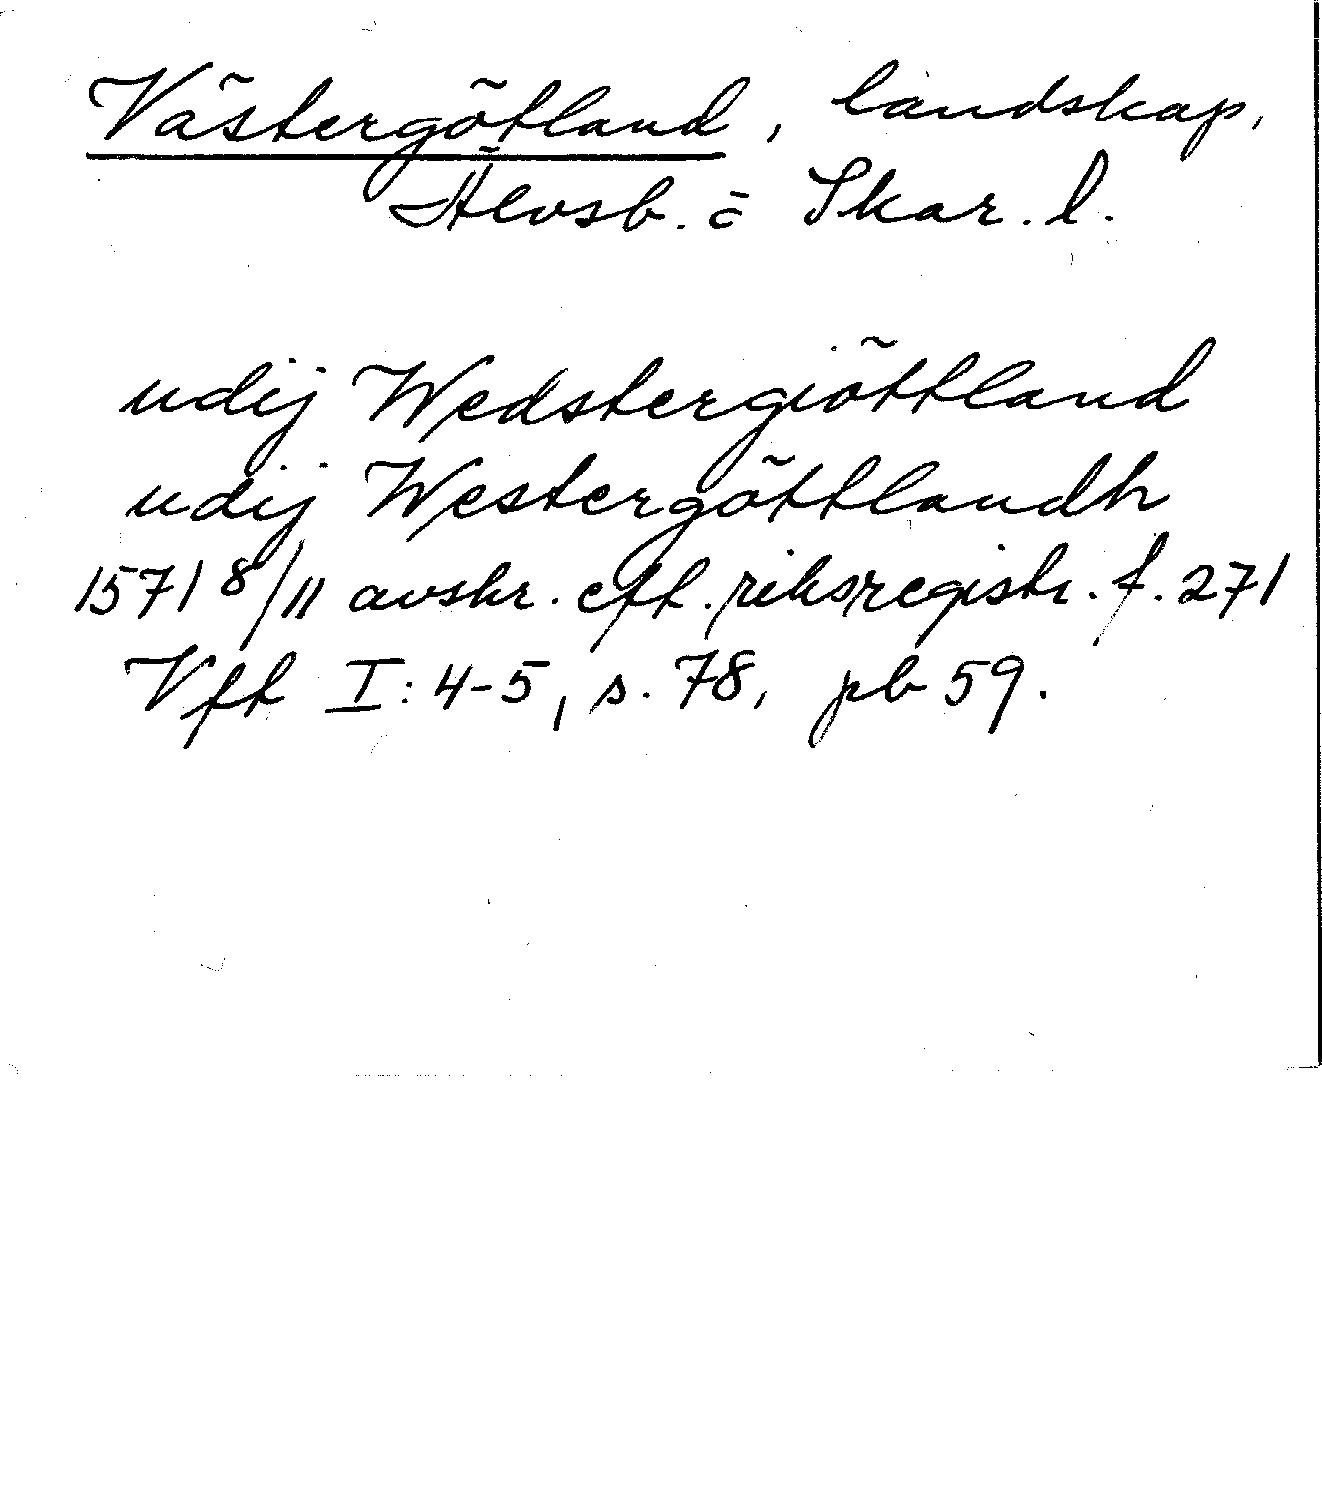 Västergötland, landskap,
Älvsb. o Skar. l.
udij Wedstergiöttland
udij Westergöttlandh
1571 8/11 avskr. eft. riksregistr. f. 271
Vft I: 4-5, s. 78, pb 59.